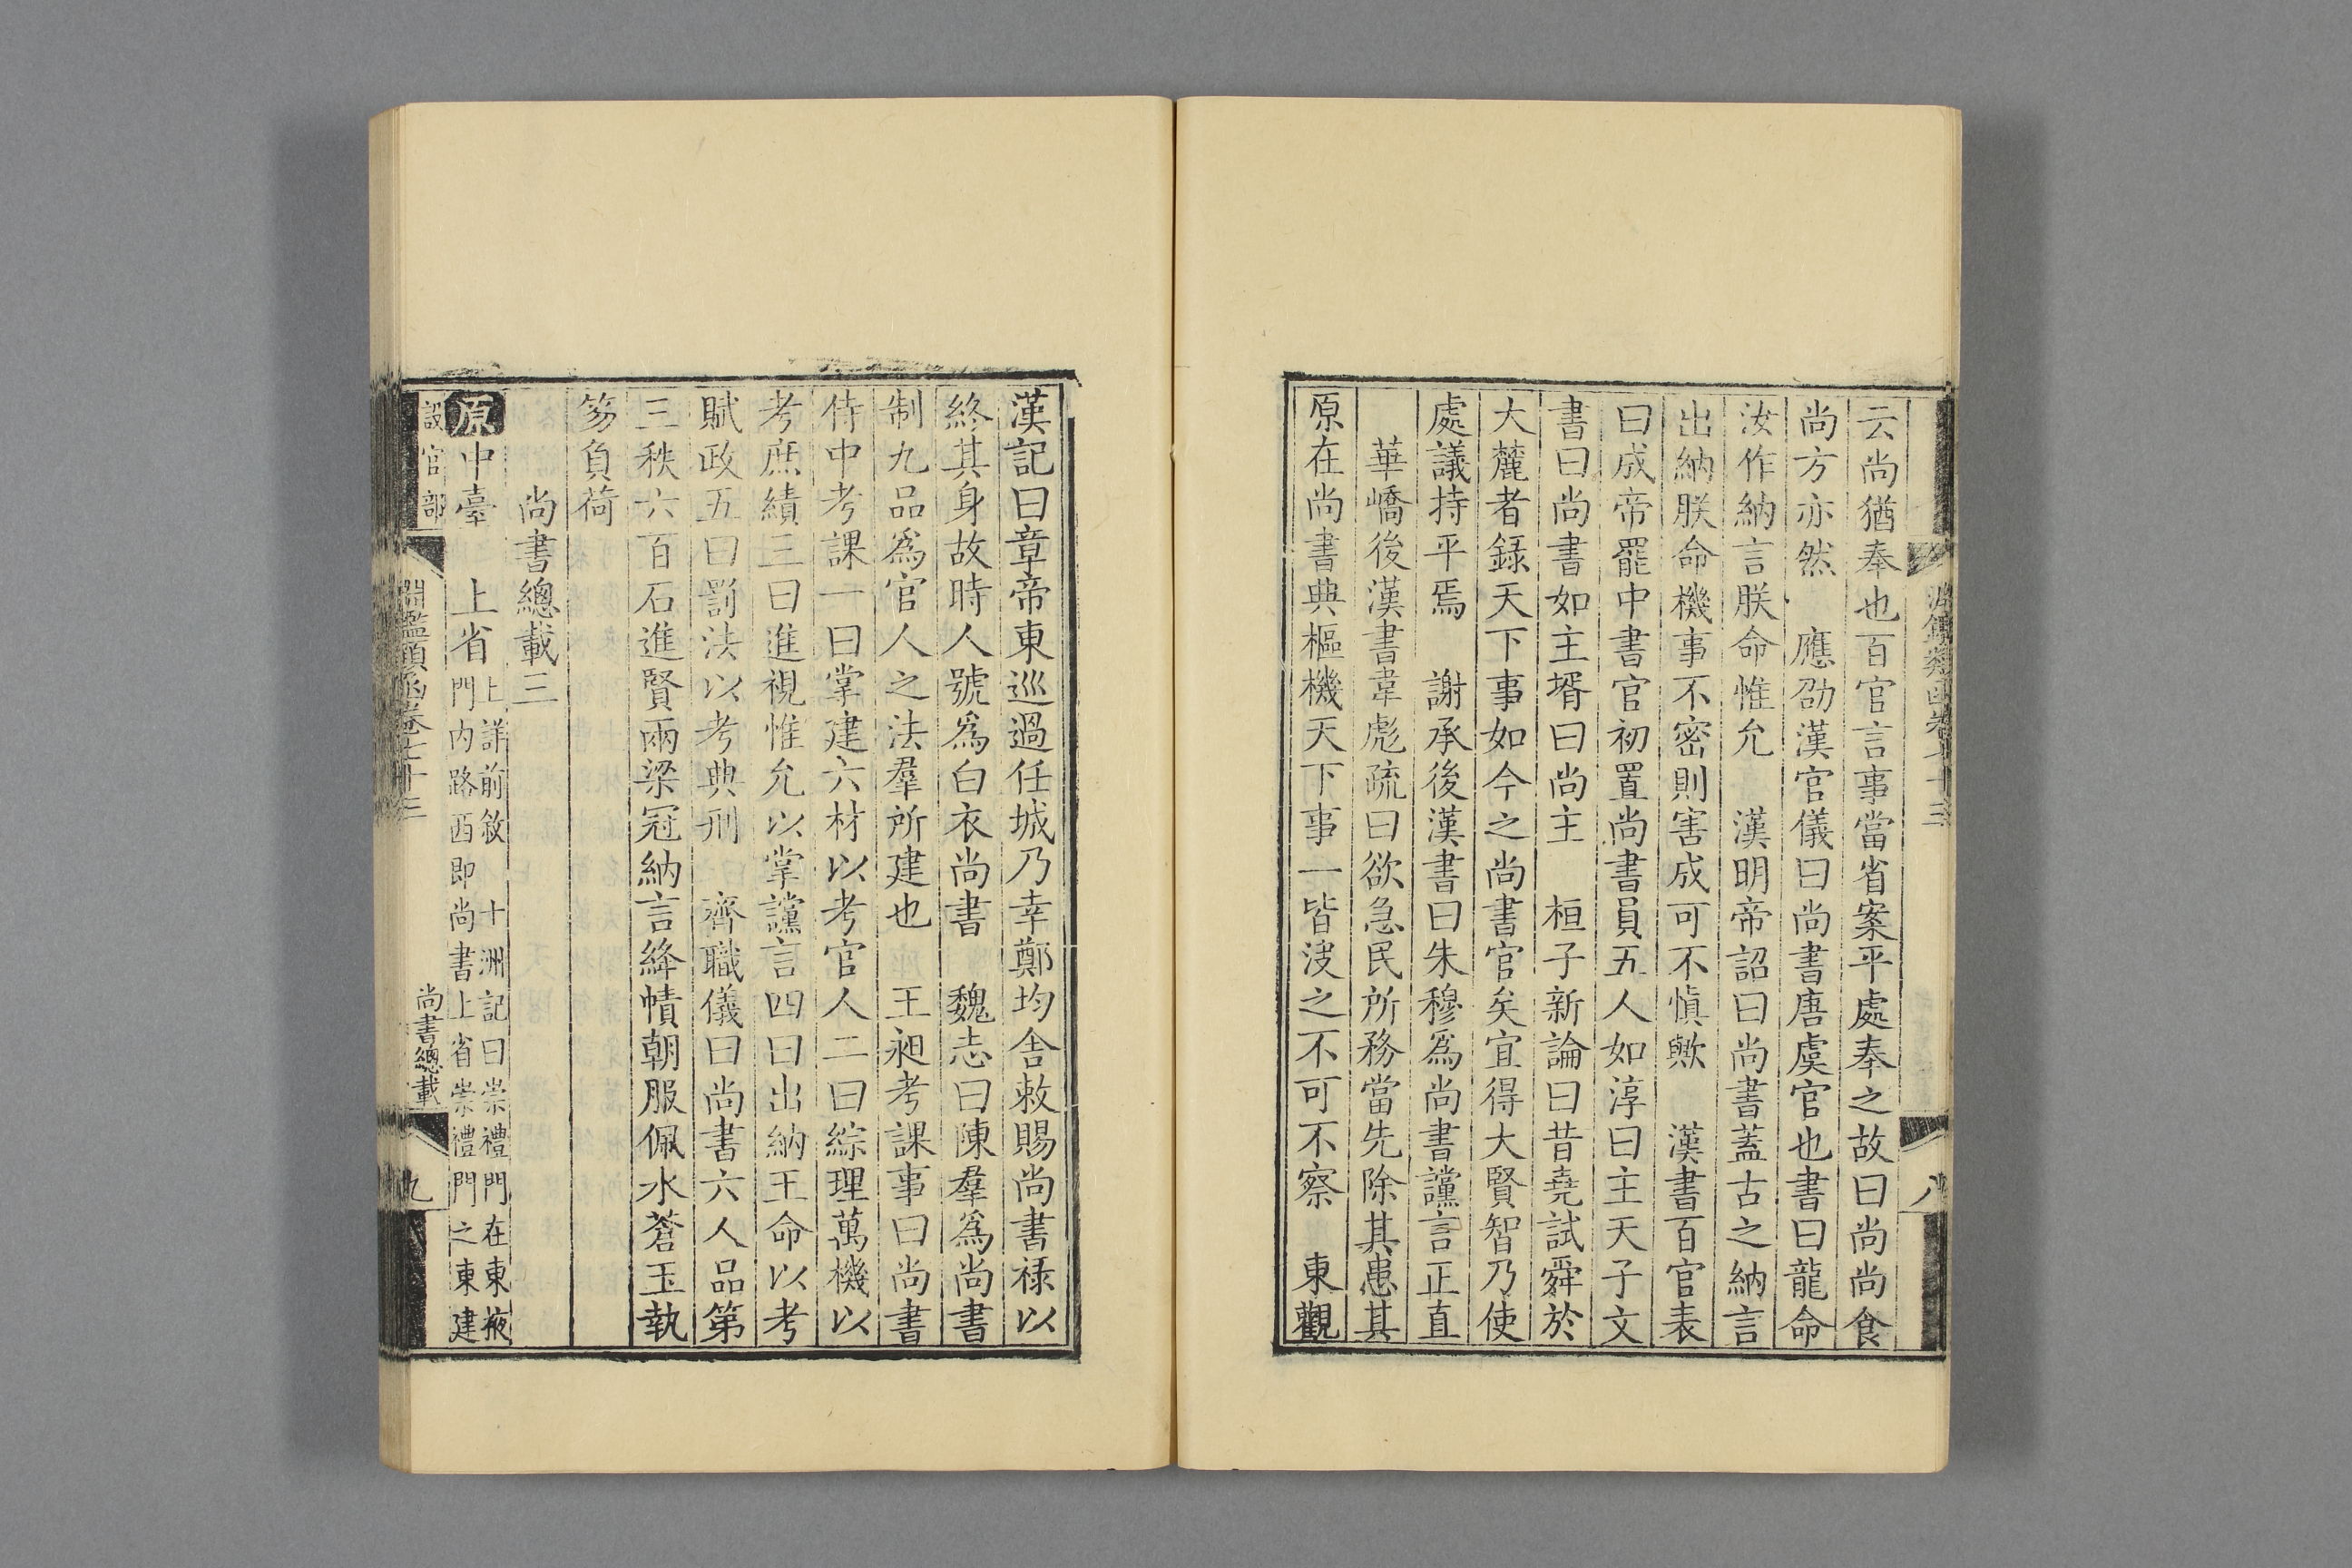 云尚猶奉也百官言事當省案平處奉之故曰尚尚食
尚方亦然　應劭漢官儀曰尚書唐虞官也書曰龍命
汝作納言朕命惟允　漢明帝詔曰尚書蓋古之納言
出納朕命機事不密則害成可不慎歟　漢書百官表
曰成帝罷中書官初置尚書員五人如淳曰主天子文
書曰尚書如主壻曰尚主　桓子新論曰昔堯試舜於
大麓者錄天下事如今之尚書官矣宜得大賢智乃使
處議持平焉　謝承後漢書曰朱穆爲尚書讜言正直
華嶠後漢書韋彪疏曰欲急民所務當先除其患其
原在尚書典樞機天下事一皆决之不可不察　東觀
八
漢記曰章帝東巡過任城乃幸鄭均舍敕賜尚書祿以
終其身故時人號爲白衣尚書　魏志曰陳羣爲尚書
制九品爲官人之法羣所建也　王昶考課事曰尚書
侍中考課一曰掌建六材以考官人二曰綜理萬機以
考庶績三曰進視惟允以掌讜言四曰出納王命以考
賦政五曰罰法以考典刑　齊職儀曰尚書六人品第
三秩六百石進賢兩梁冠納言絳幘朝服佩水蒼玉執
笏負荷
尚書總載三
原中臺　上省上詳前敘　十洲記曰崇禮門在東掖
門内路西即尚書上省崇禮門之東建
設官部
淵鑑類函卷七十三
尚書總載
九